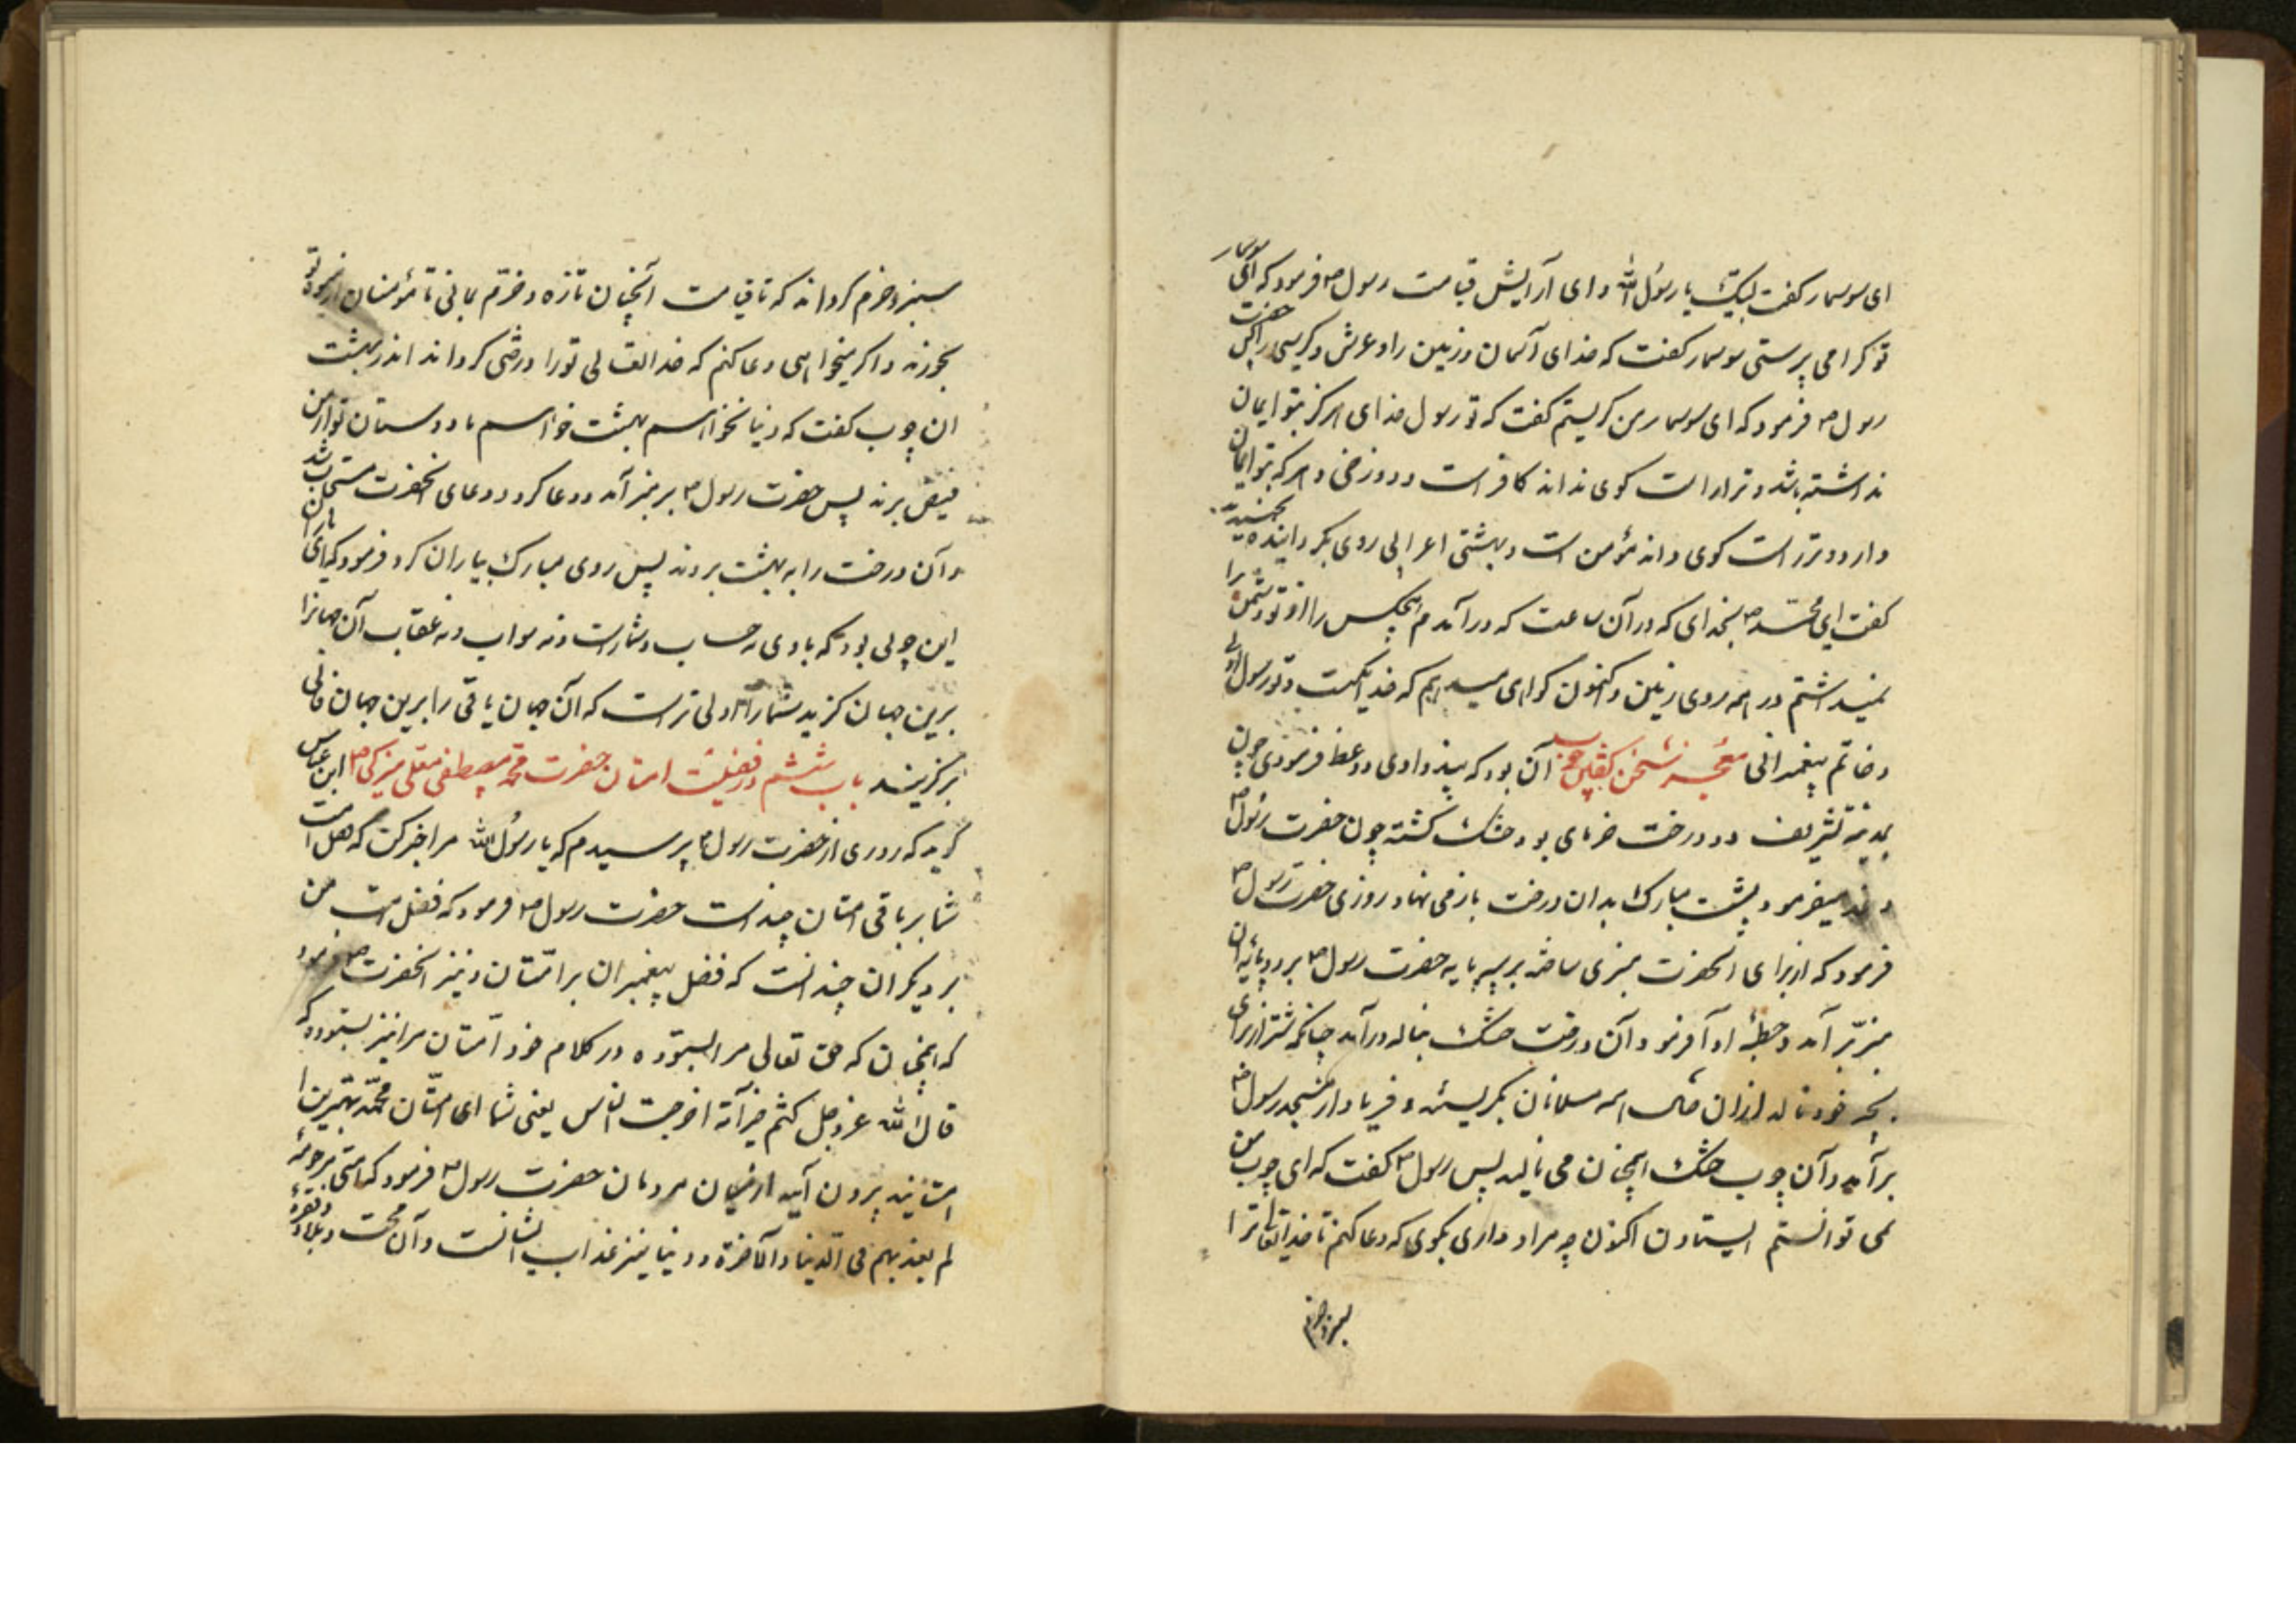 ای سوسمار کفت لبیک یا رسول الله و ای آرایش قیامت رسول ص فرمود که ای سوسمار
تو کرا می پرستی سوسمار کفت که خدای آسمان و زمین را و عرش و کرسی را پس حضرت
رسول ص فرمود که ای سوسمار من کیستم کفت که تو رسول خدای هرکز بتو ایمان
نداشته باشد و ترا راست کوی نداند کافر است و دوزخی و هر که بتو ایمان
دارد و ترا راست کوی داند مؤمن است و بهشتی اعرابی روی بکردانیده بخندید
کفت ای محمد ص بخدای که در آن ساعت که در آمدم هیچکس را از تو دشمن را
نمیداشتم در همه روی زمین و اکنون کواهی میدهم که خدا یکیست و تو رسول اوئی
و خاتم پیغمبرانی معجزه سخن کفتن چوب آن بود که پند دادی و وعظ فرمودی چون
بمدینه تشریف درخت خرمای بود خشک کشته چون حضرت رسول ص
وعظ میفرمود پشت مبارک بدان درخت باز می نهاد روزی حضرت رسول ص
فرمود که از برای آنحضرت منبری ساختند بر سه پایه حضرت رسول ص بر دو پایه آن
منبر بر آمد و خطبه ادا فرمود آن درخت خشک بناله در آمد چنانکه شتر از برای
بچه خود ناله از ان همه مسلمانان بگریستند و فریاد از مسجد رسول خدا
بر آمد و آن چوب خشک همچنان می نالید پس رسول ص کفت که ای چوب من
نمی توانستم ایستادن اکنون چه مراد داری بکوی که دعا کنم تا خدایتعالی ترا
سبز و خرم
سبز و خرم کرداند که تا قیامت آنچنان تازه و خرّم بمانی تا مؤمنان از میوه تو
بخورند و اکر میخواهی دعا کنم که خدایتعالی تو را درختی کرداند اندر بهشت
ان چوب کفت که دنیا نخواهم بهشت خواهم تا دوستان تو از من
فیض برند پس حضرت رسول ص بر منبر آمد و دعا کرد و دعای آنحضرت مستجاب شد
و آن درخت را به بهشت بردند پس روی مبارک بیاران کرد و فرمود که ای یاران من
این چوبی بود که با وی نه حساب و شمار است و نه ثواب و نه عقاب آن جهانرا
برین جهان کزید شما را اولی تر است که آن جهان باقی را برین جهان فانی
برکزینید باب ششم در فضیلت امتان حضرت محمد مصطفی معلی مزکی ص ابن عباس
کوید که روزی از حضرت رسول ص پرسیدم که یا رسول الله مرا خبر کن که فضل امت
شما بر باقی امتان چند است حضرت رسول ص فرمود که فضل امت من
بر دیکران چندانست که فضل پیغمبران بر امّتان و نیز آنحضرت ص فرمود
که همچنان که حق تعالی مرا بستوده در کلام خود امّتان مرا نیز بستوده که
قال الله عزوجل کنتم خیر آمّة اخرجت للناس یعنی شما ای امّتان محمّد بهترین
امتانید بیرون آیید از میان مردمان حضرت رسول ص فرمود که امّتی مرحومة
لم یعذبهم فی الدنیا و الآخرة و دنیا نیز عذاب ایشانست و آن محنت و بلا و فقر